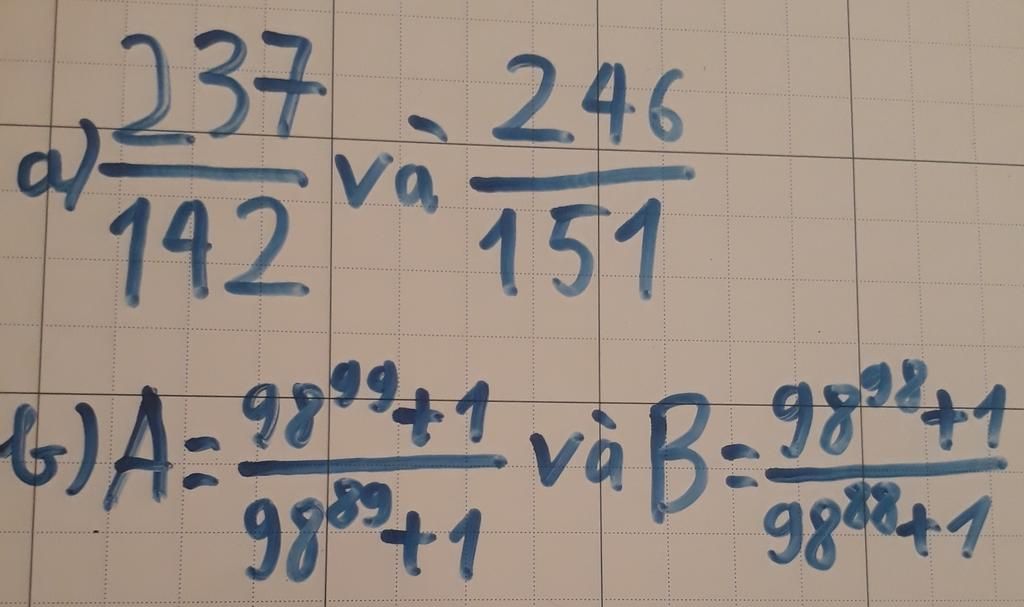 a) 237/142 và 246/151
b) A = (98^99 + 1)/(98^89 + 1) và B = (98^98 + 1)/(98^88 + 1)